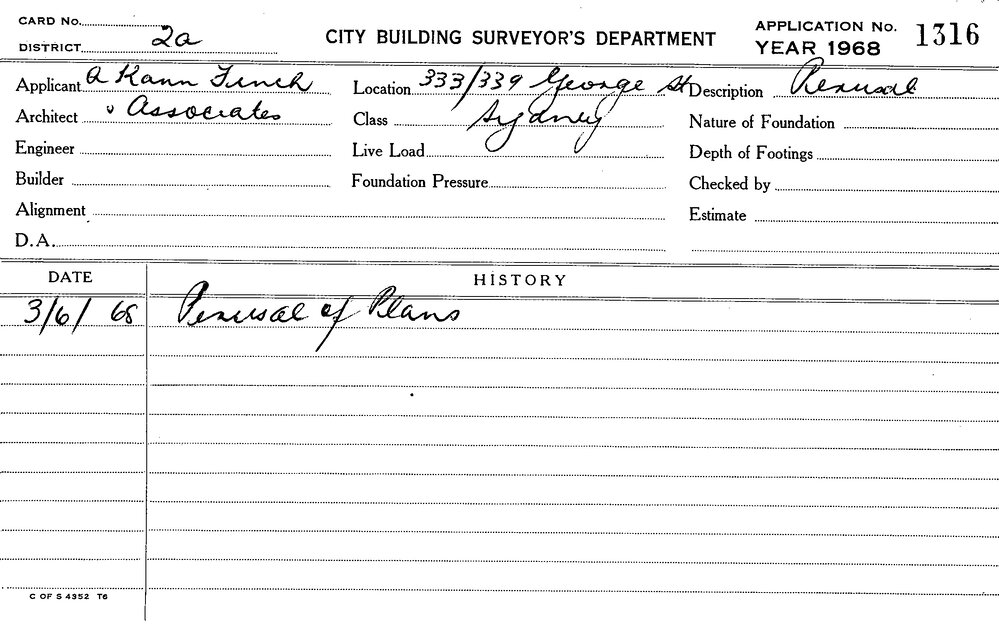 CARD No.
DISTRICT 2a
CITY BUILDING SURVEYOR'S DEPARTMENT
APPLICATION No. 1316
YEAR 1968
Applicant a Kann Finch
Location 333/339 George St
Description Perusal
Architect & Associates
Class Sydney
Nature of Foundation
Engineer
Live Load
Depth of Footings
Builder
Foundation Pressure
Checked by
Alignment
Estimate
D.A.
DATE
HISTORY
3/6/68 Perusal of Plans
C OF S 4352 T6